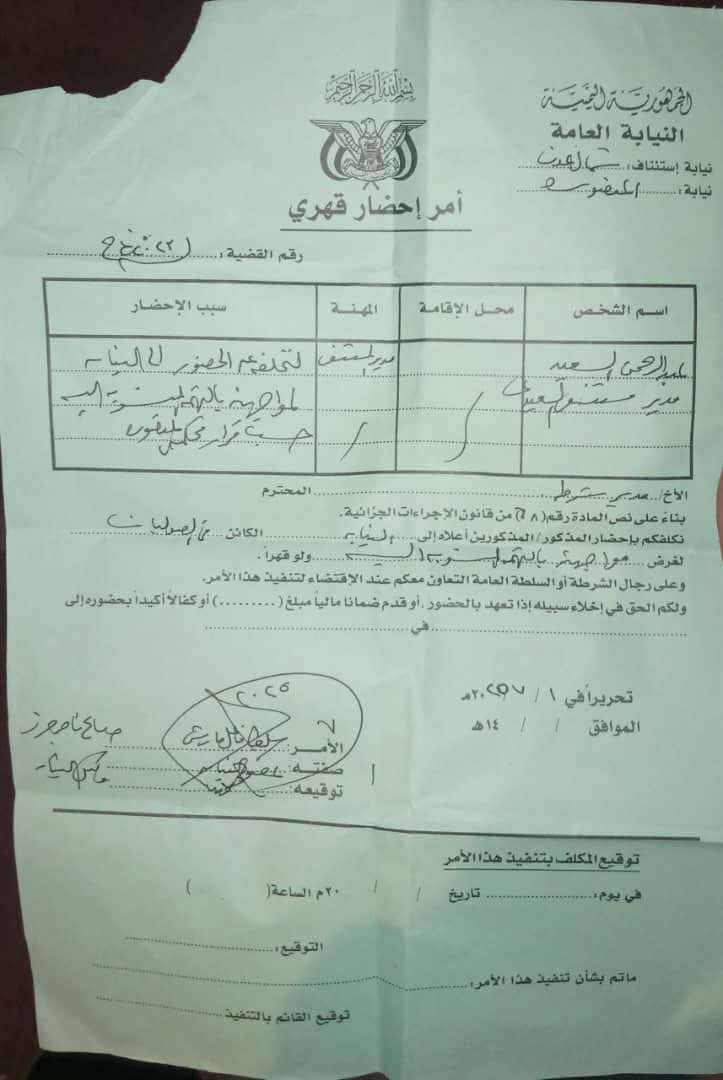 بسم الله الرحمن الرحيم
الجمهورية اليمنية
النيابة العامة
نيابة إستئناف: شمال عدن
نيابة: المنصورة
أمر إحضار قهري
رقم القضية:
اسم الشخص محل الإقامة المهنة سبب الإحضار
عبدالرحمن السعيد مدير المستشفى لتخلفه عن الحضور الى النيابة
مدير مستشفى لمواجهته بالتهم المنسوبة اليه
حسب قرار
الأخ/ مدير شرطة المحترم
بناءً على نص المادة رقم (٦٨) من قانون الإجراءات الجزائية.
نكلفكم بإحضار المذكور/ المذكورين أعلاه إلى النيابة الكائن
لغرض مواجهته بالتهم المنسوبة اليه ولو قهراً.
وعلى رجال الشرطة أو السلطة العامة التعاون معكم عند الإقتضاء لتنفيذ هذا الأمر.
ولكم الحق في إخلاء سبيله إذا تعهد بالحضور. أو قدم ضماناً مالياً مبلغ (.........) أو كفالاً أكيداً بحضوره إلى
في
تحريراً في ١ / ٧ / ٢٠٢٥م
الموافق / / ١٤هـ
٢٠٢٥
الأمر:
صفته: عضو النيابة
توقيعه:
توقيع المكلف بتنفيذ هذا الأمر
في يوم: تاريخ / / ٢٠م الساعة( )
التوقيع:
ماتم بشأن تنفيذ هذا الأمر:
توقيع القائم بالتنفيذ